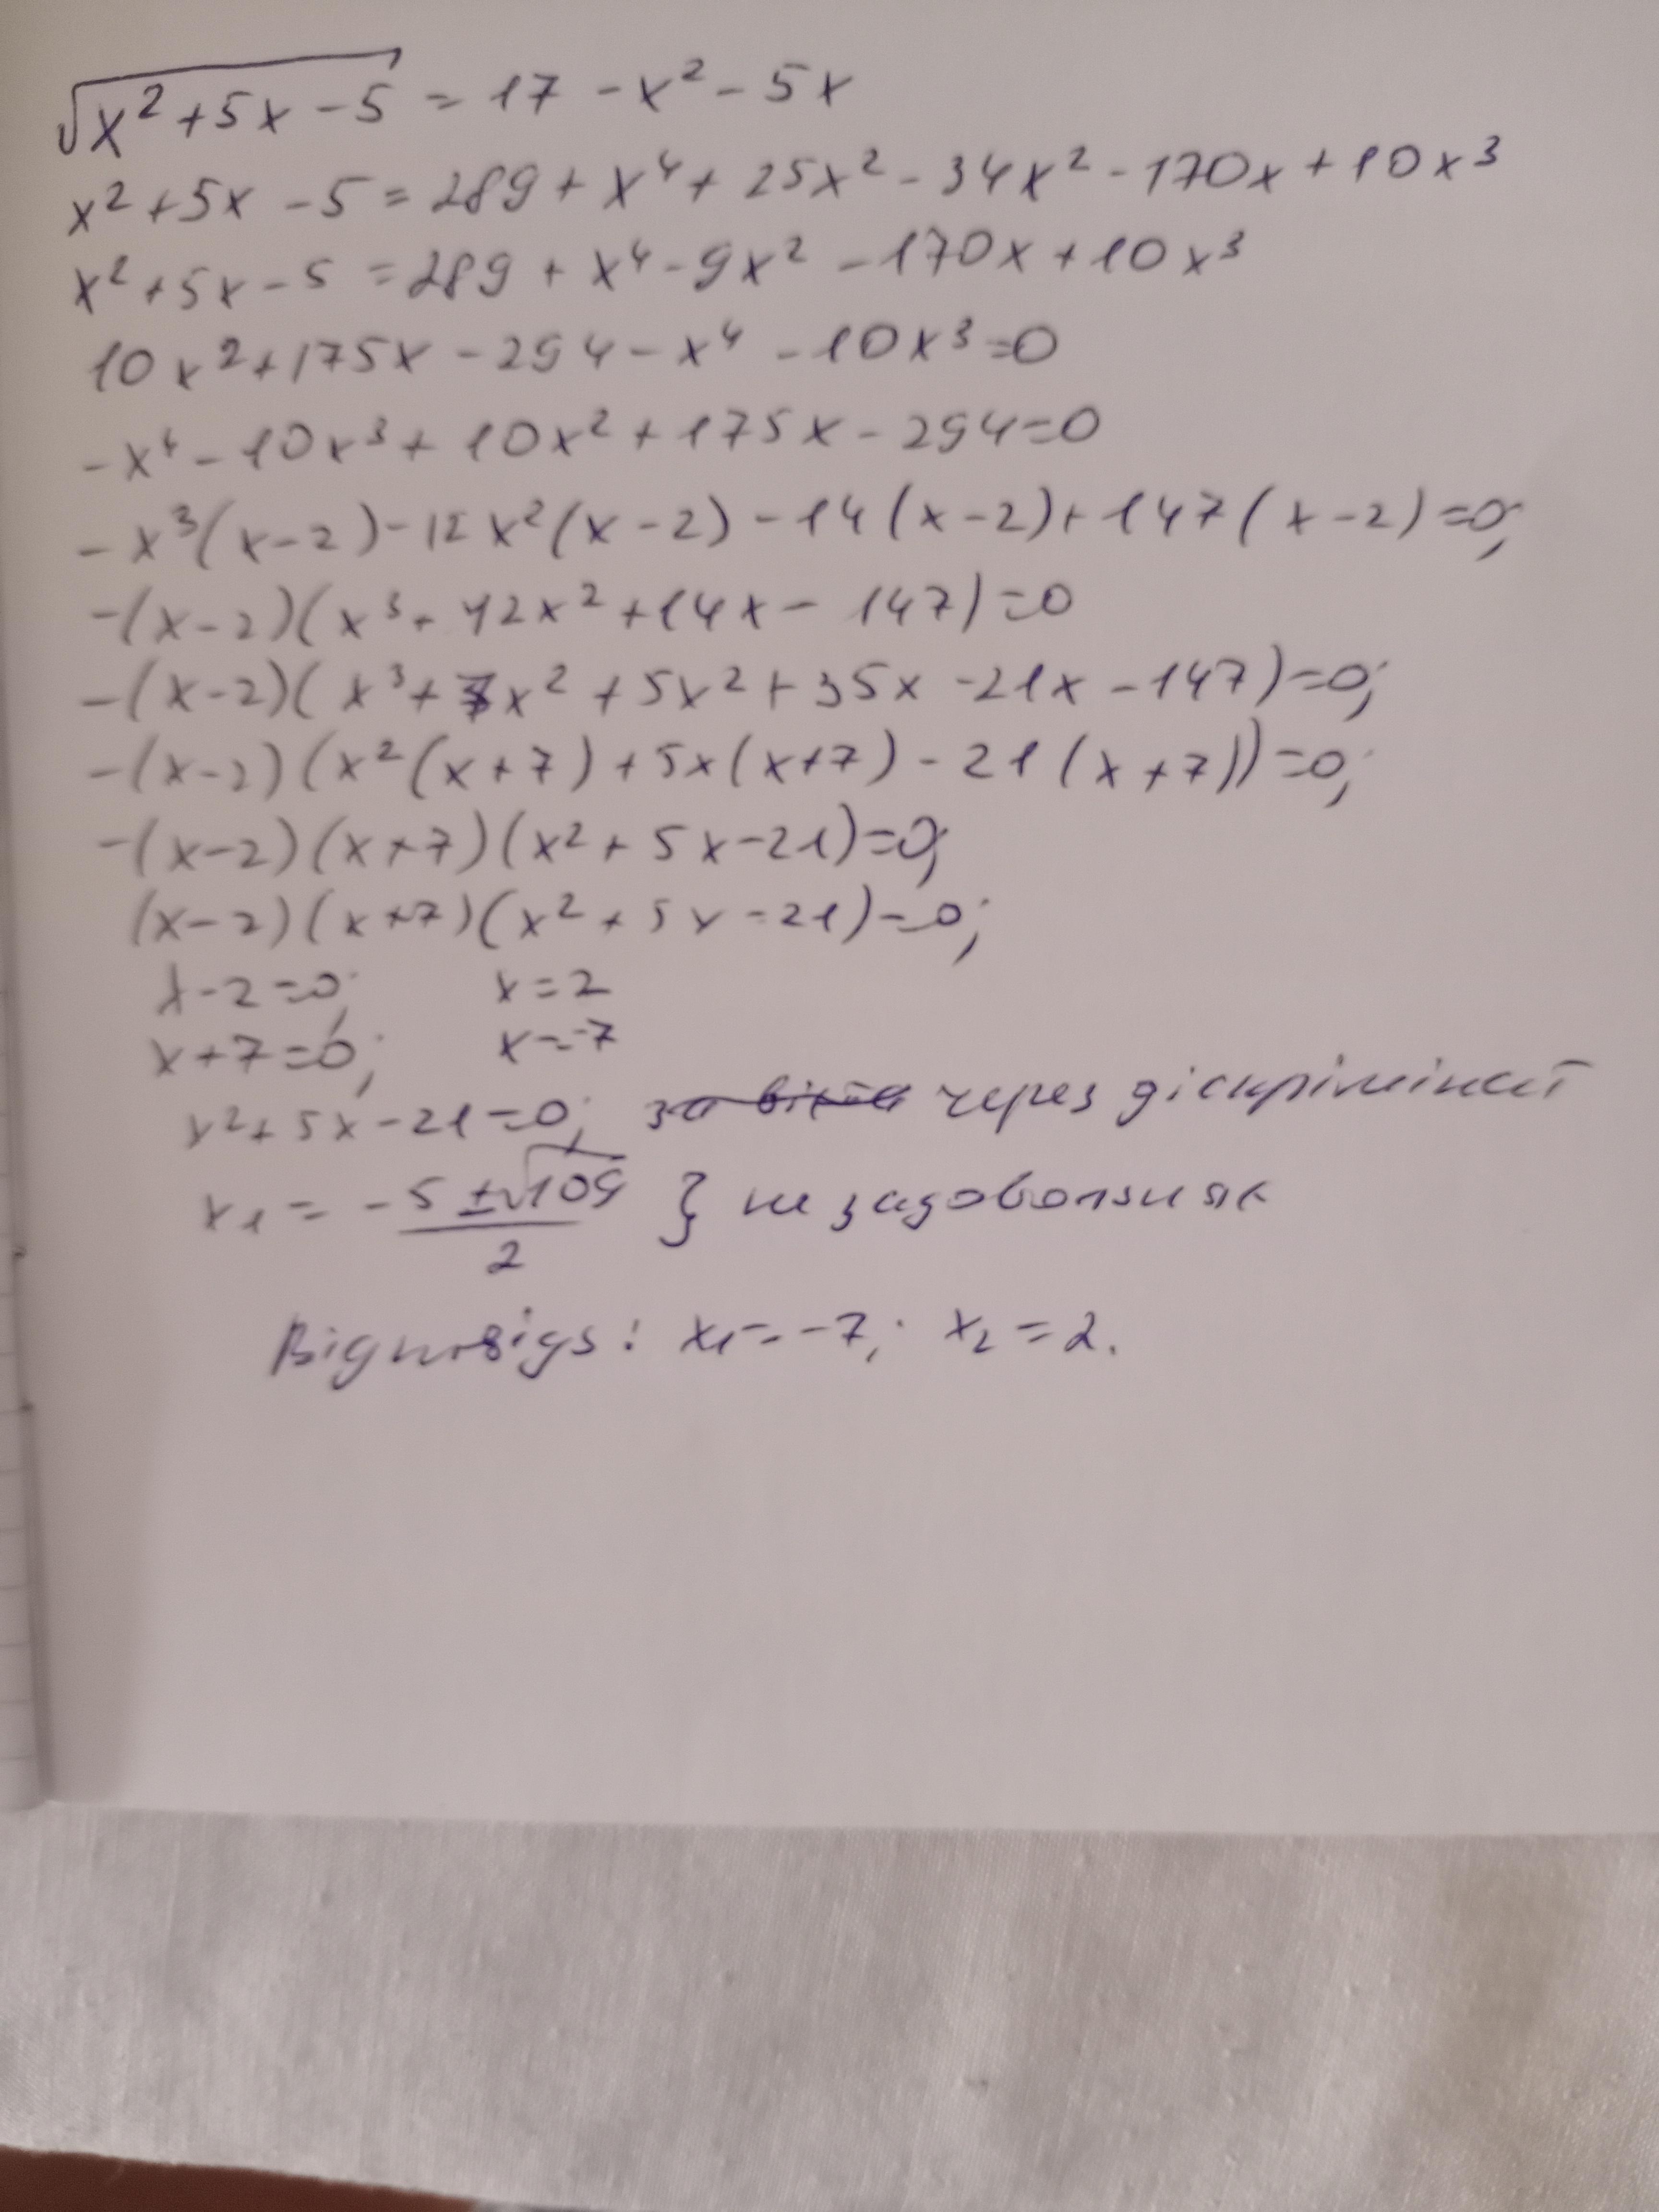 √(x² + 5x - 5) = 17 - x² - 5x
x² + 5x - 5 = 289 + x⁴ + 25x² - 34x² - 170x + 10x³
x² + 5x - 5 = 289 + x⁴ - 9x² - 170x + 10x³
10x² + 175x - 294 - x⁴ - 10x³ = 0
-x⁴ - 10x³ + 10x² + 175x - 294 = 0
-x³(x-2) - 12x²(x-2) - 14(x-2) + 147(x-2) = 0;
-(x-2)(x³ + 12x² + 14x - 147) = 0
-(x-2)(x³ + 7x² + 5x² + 35x - 21x - 147) = 0;
-(x-2)(x²(x+7) + 5x(x+7) - 21(x+7)) = 0;
-(x-2)(x+7)(x² + 5x - 21) = 0;
(x-2)(x+7)(x² + 5x - 21) = 0;
x - 2 = 0; x = 2
x + 7 = 0; x = -7
x² + 5x - 21 = 0; через діскрімінант
x₁ = (-5 ± √109)/2 } не
Відповідь: x₁ = -7; x₂ = 2.